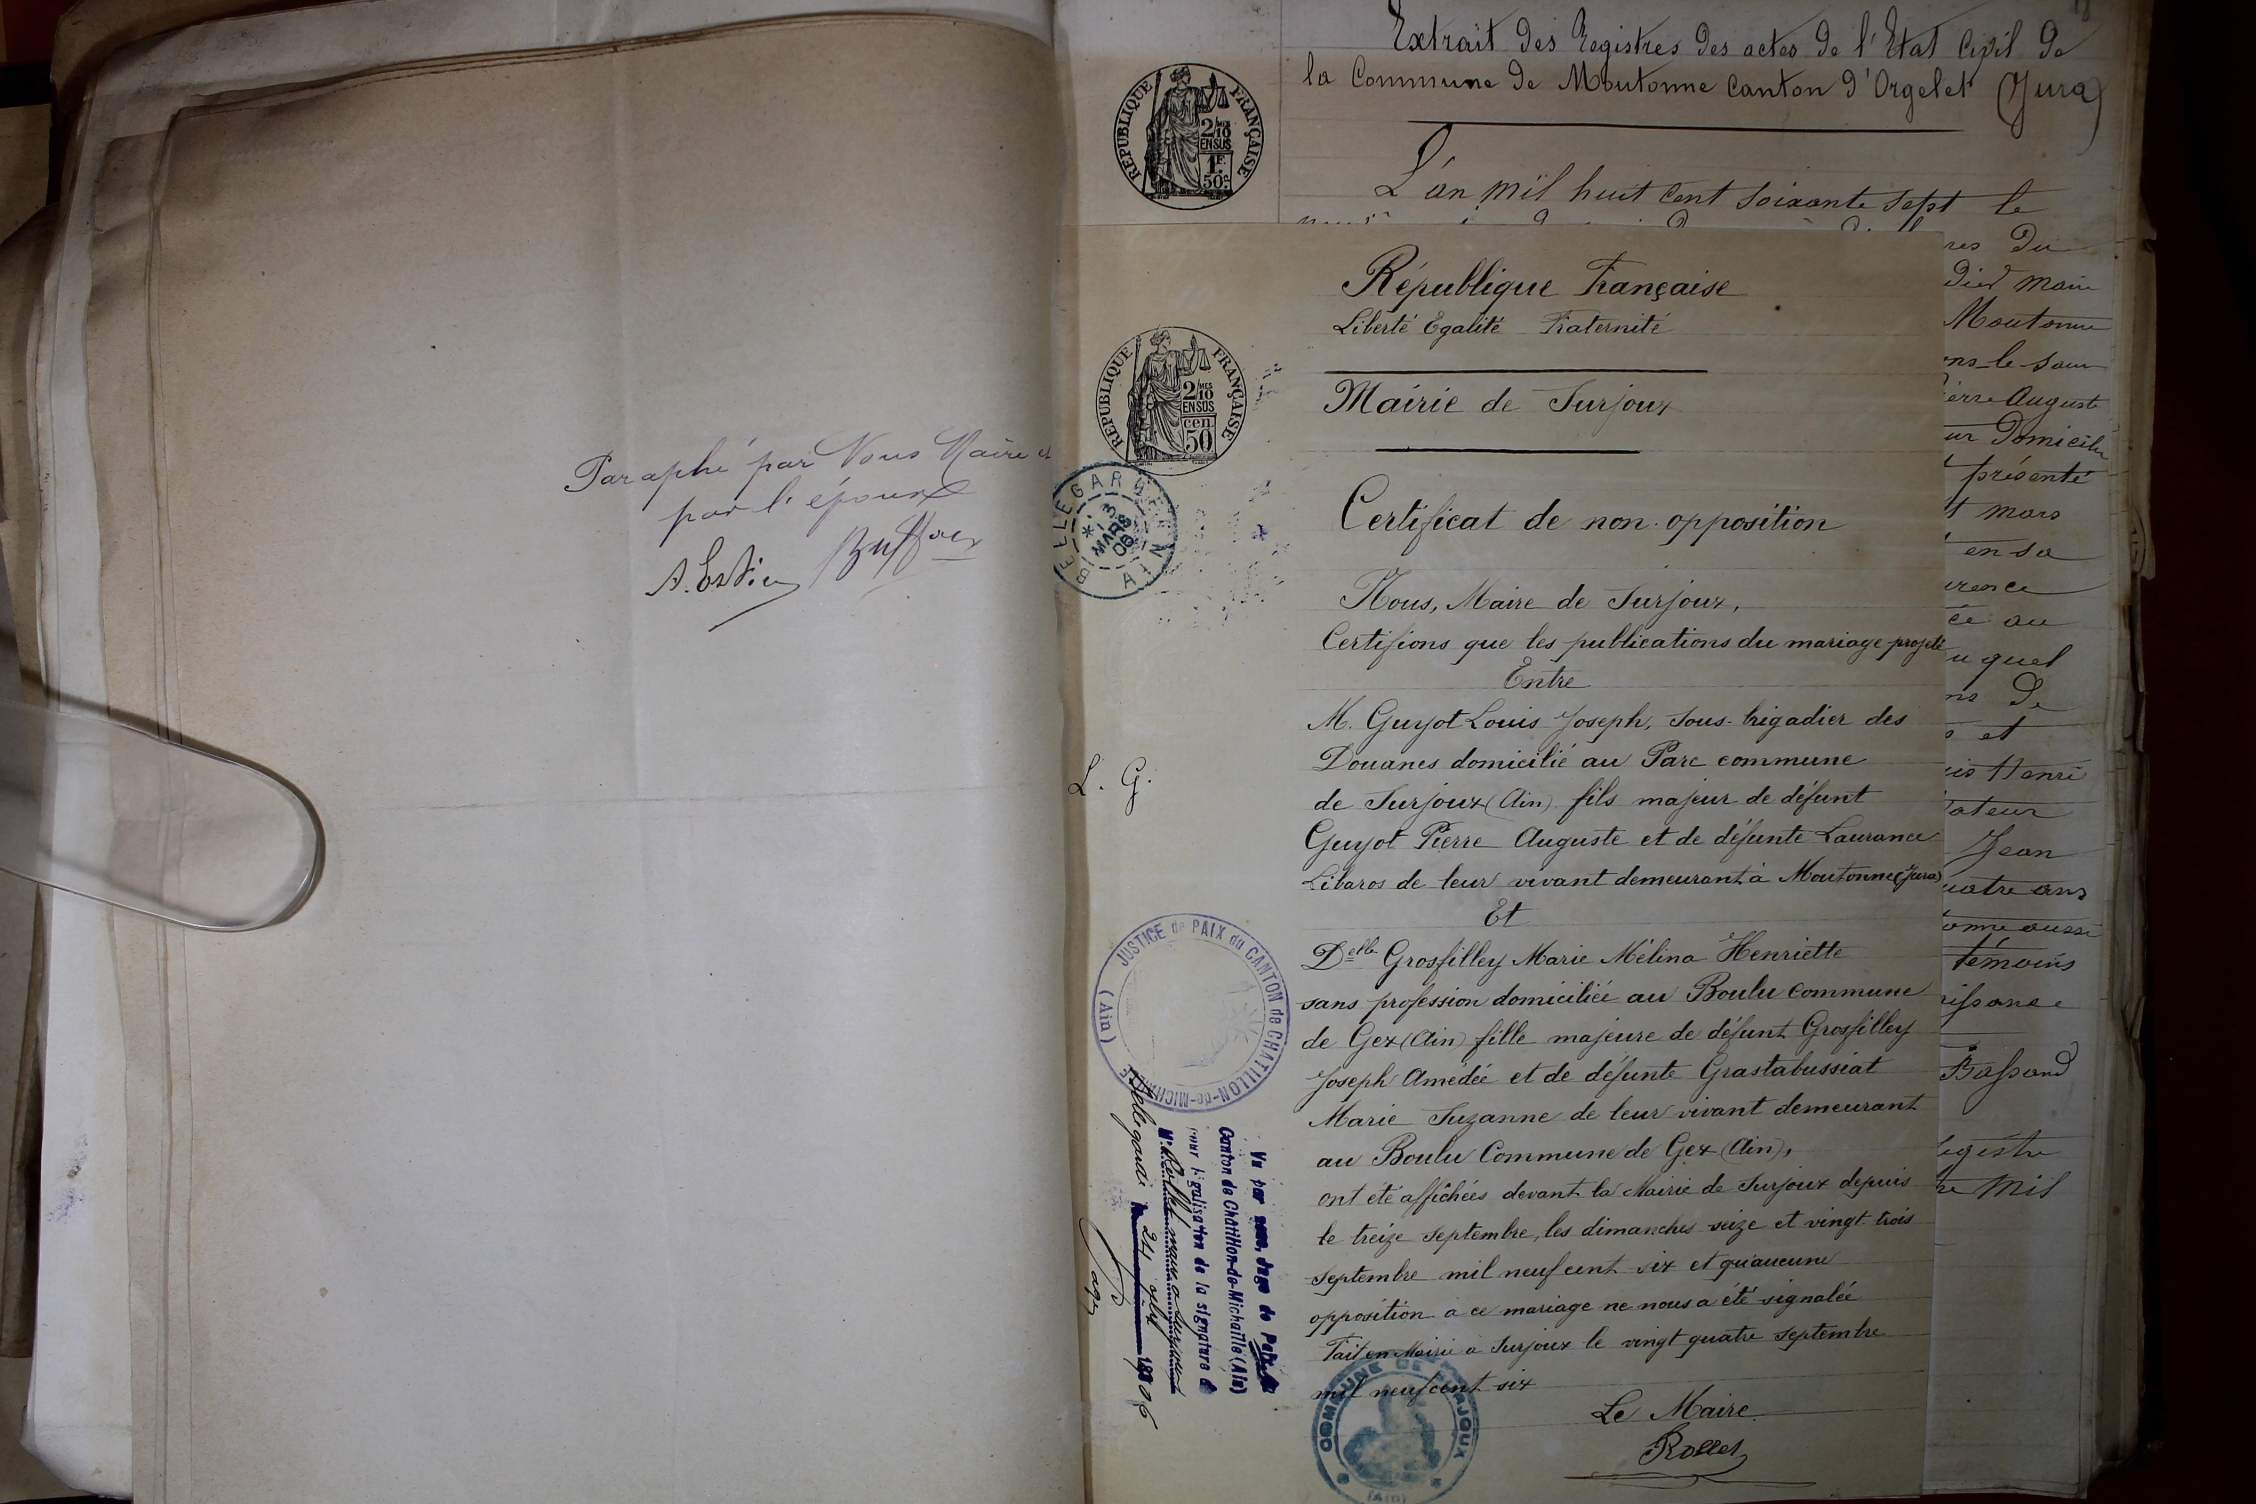 Paraphé par Nous Maire et
par l'époux
Extrait des Registres des actes de l'Etat Civil de
la Commune de Moutonne Canton d'Orgelet (Jura)
REPUBLIQUE FRANÇAISE
2/10 MES
EN SUS
1F.
50c.
L'an mil huit cent soixante sept le
res du
Moutonne
ierre Auguste
ur Domicilié
présenté
t mars
en sa
ée au
u quel
ns de
et
is Henri
Jean
uatre ans
onne aussi
témoins
Bassand
egistre
re Mil
République Française
Liberté Egalité Fraternité
REPUBLIQUE FRANÇAISE
2/10 MES
EN SUS
cen.
50
BELLEGARDE
13
MARS
06
AIN
Mairie de Surjoux
Certificat de non-opposition
Nous, Maire de Surjoux,
Certifions que les publications du mariage projeté
Entre
M. Guyot Louis Joseph, sous-brigadier des
Douanes domicilié au Parc commune
de Surjoux (Ain) fils majeur de défunt
Guyot Pierre Auguste et de défunte Laurance
Libaros de leur vivant demeurant à Moutonne (Jura)
Et
Delle Grosfilley Marie Mélina Henriette
sans profession domiciliée au Boulu commune
de Gex (Ain) fille majeure de défunt Grosfilley
Joseph Amédée et de défunte Grastabussiat
Marie Suzanne de leur vivant demeurant
au Boulu Commune de Gex (Ain),
ont été affichées devant la Mairie de Surjoux depuis
le treize septembre, les dimanches seize et vingt-trois
septembre mil neuf cent six et qu'aucune
opposition à ce mariage ne nous a été signalée
Fait en Mairie à Surjoux le vingt quatre septembre
mil neuf cent six
Le Maire
Rosset
COMMUNE DE SURJOUX
(AIN)
L. G.
JUSTICE de PAIX du CANTON de CHATILLON-de-MICHAILLE
(Ain)
Vu par nous, Juge de Paix du
Canton de Chatillon-de-Michaille (Ain)
pour légalisation de la signature d
Bellegarde le 24 7bre 1906